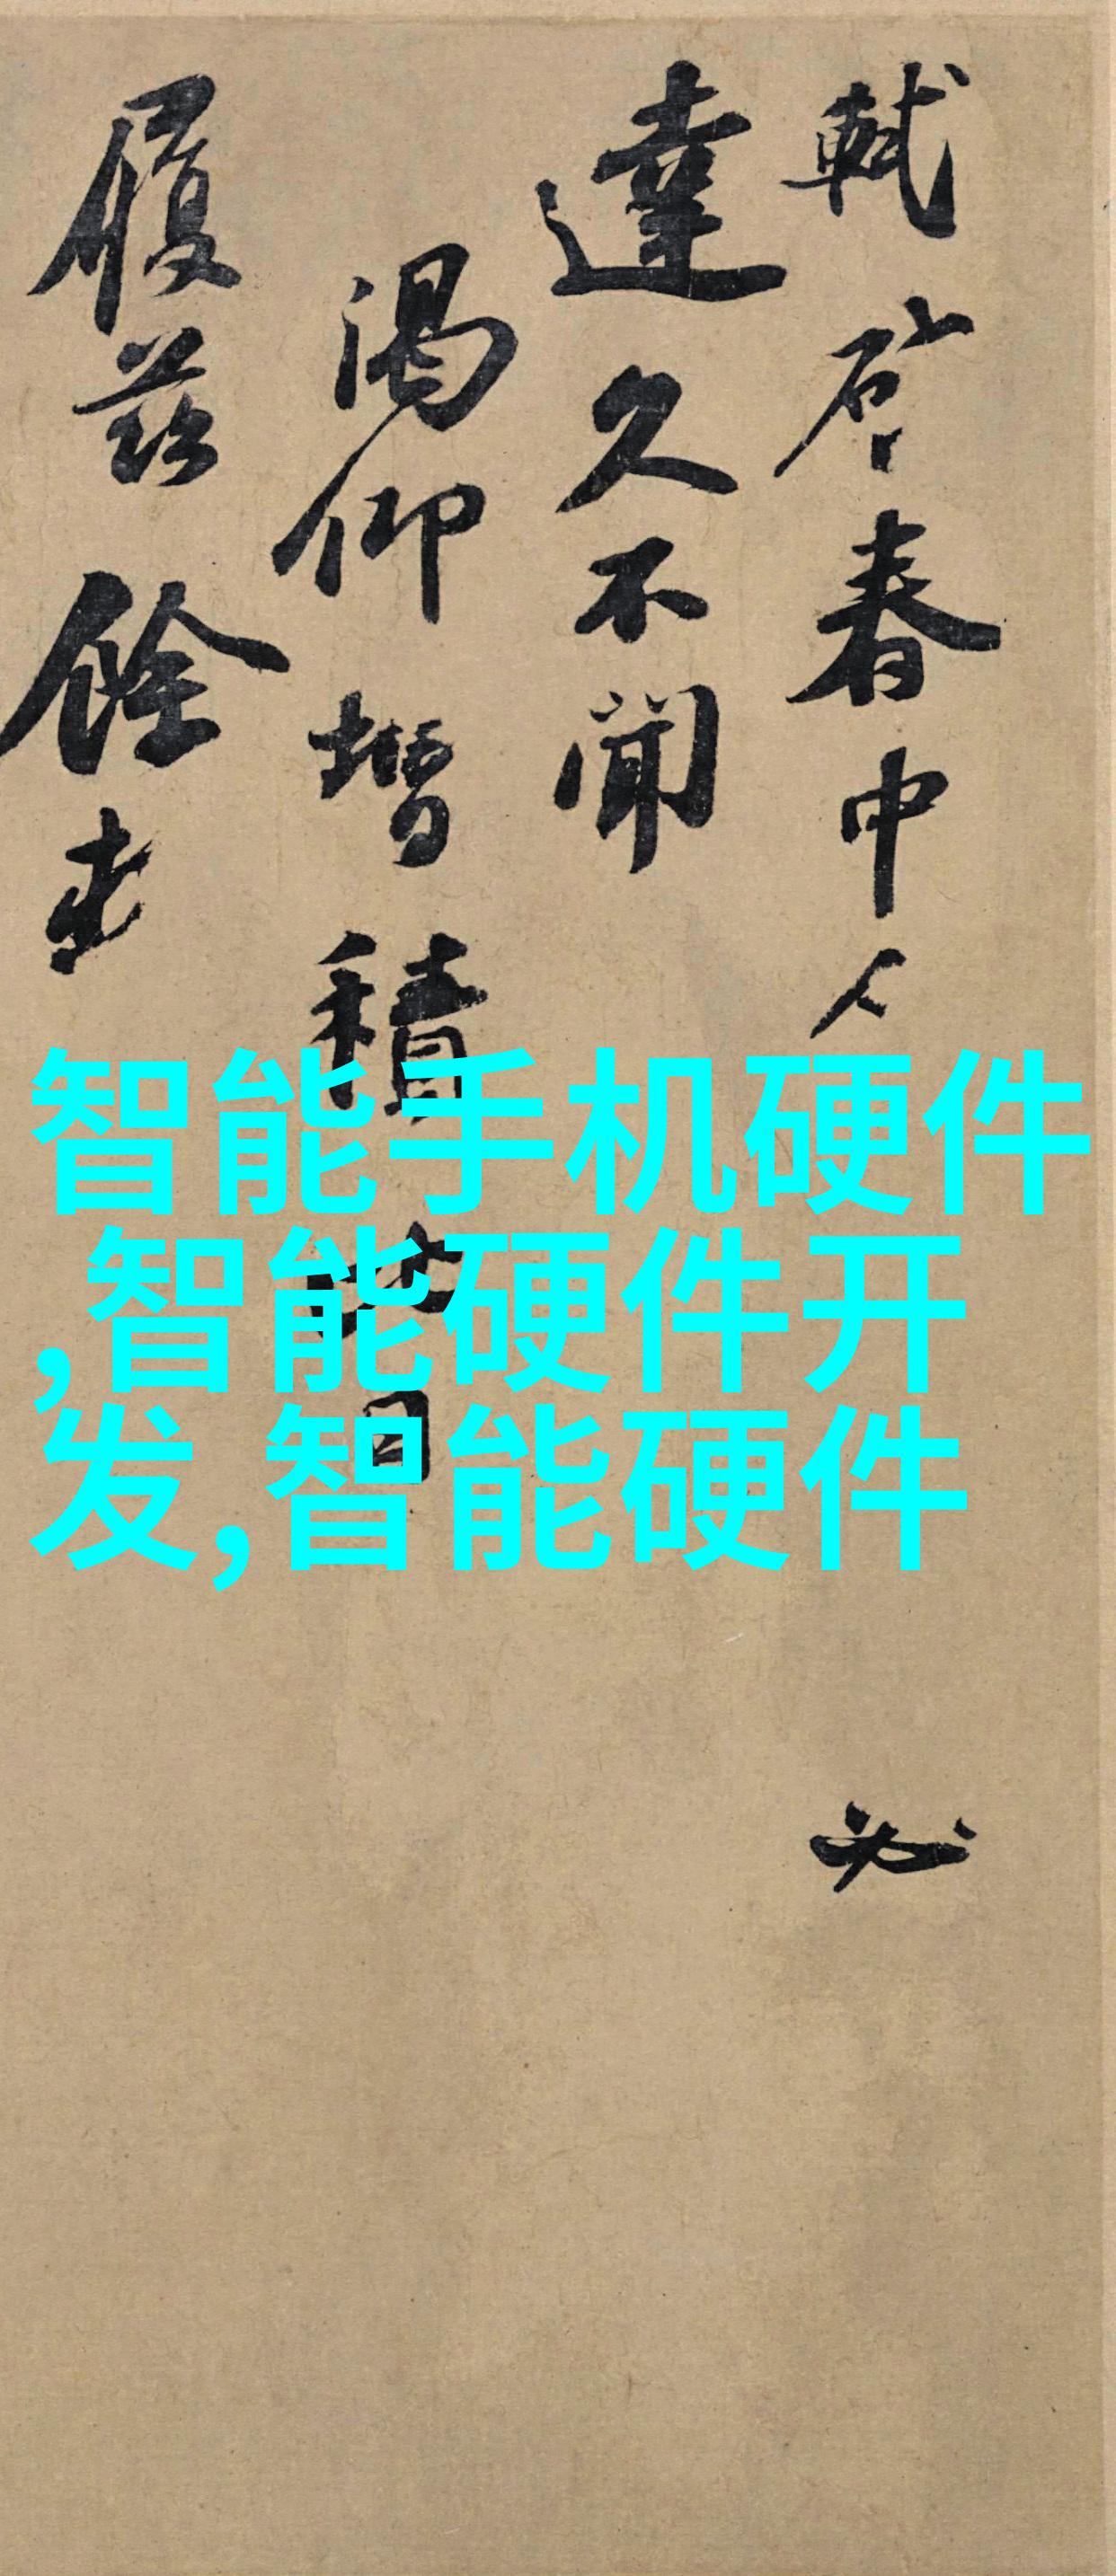 軾啓春中人必
達久不聞
渴仰增積比日
履茲餘
智能手机硬件
,智能硬件开
发,智能硬件